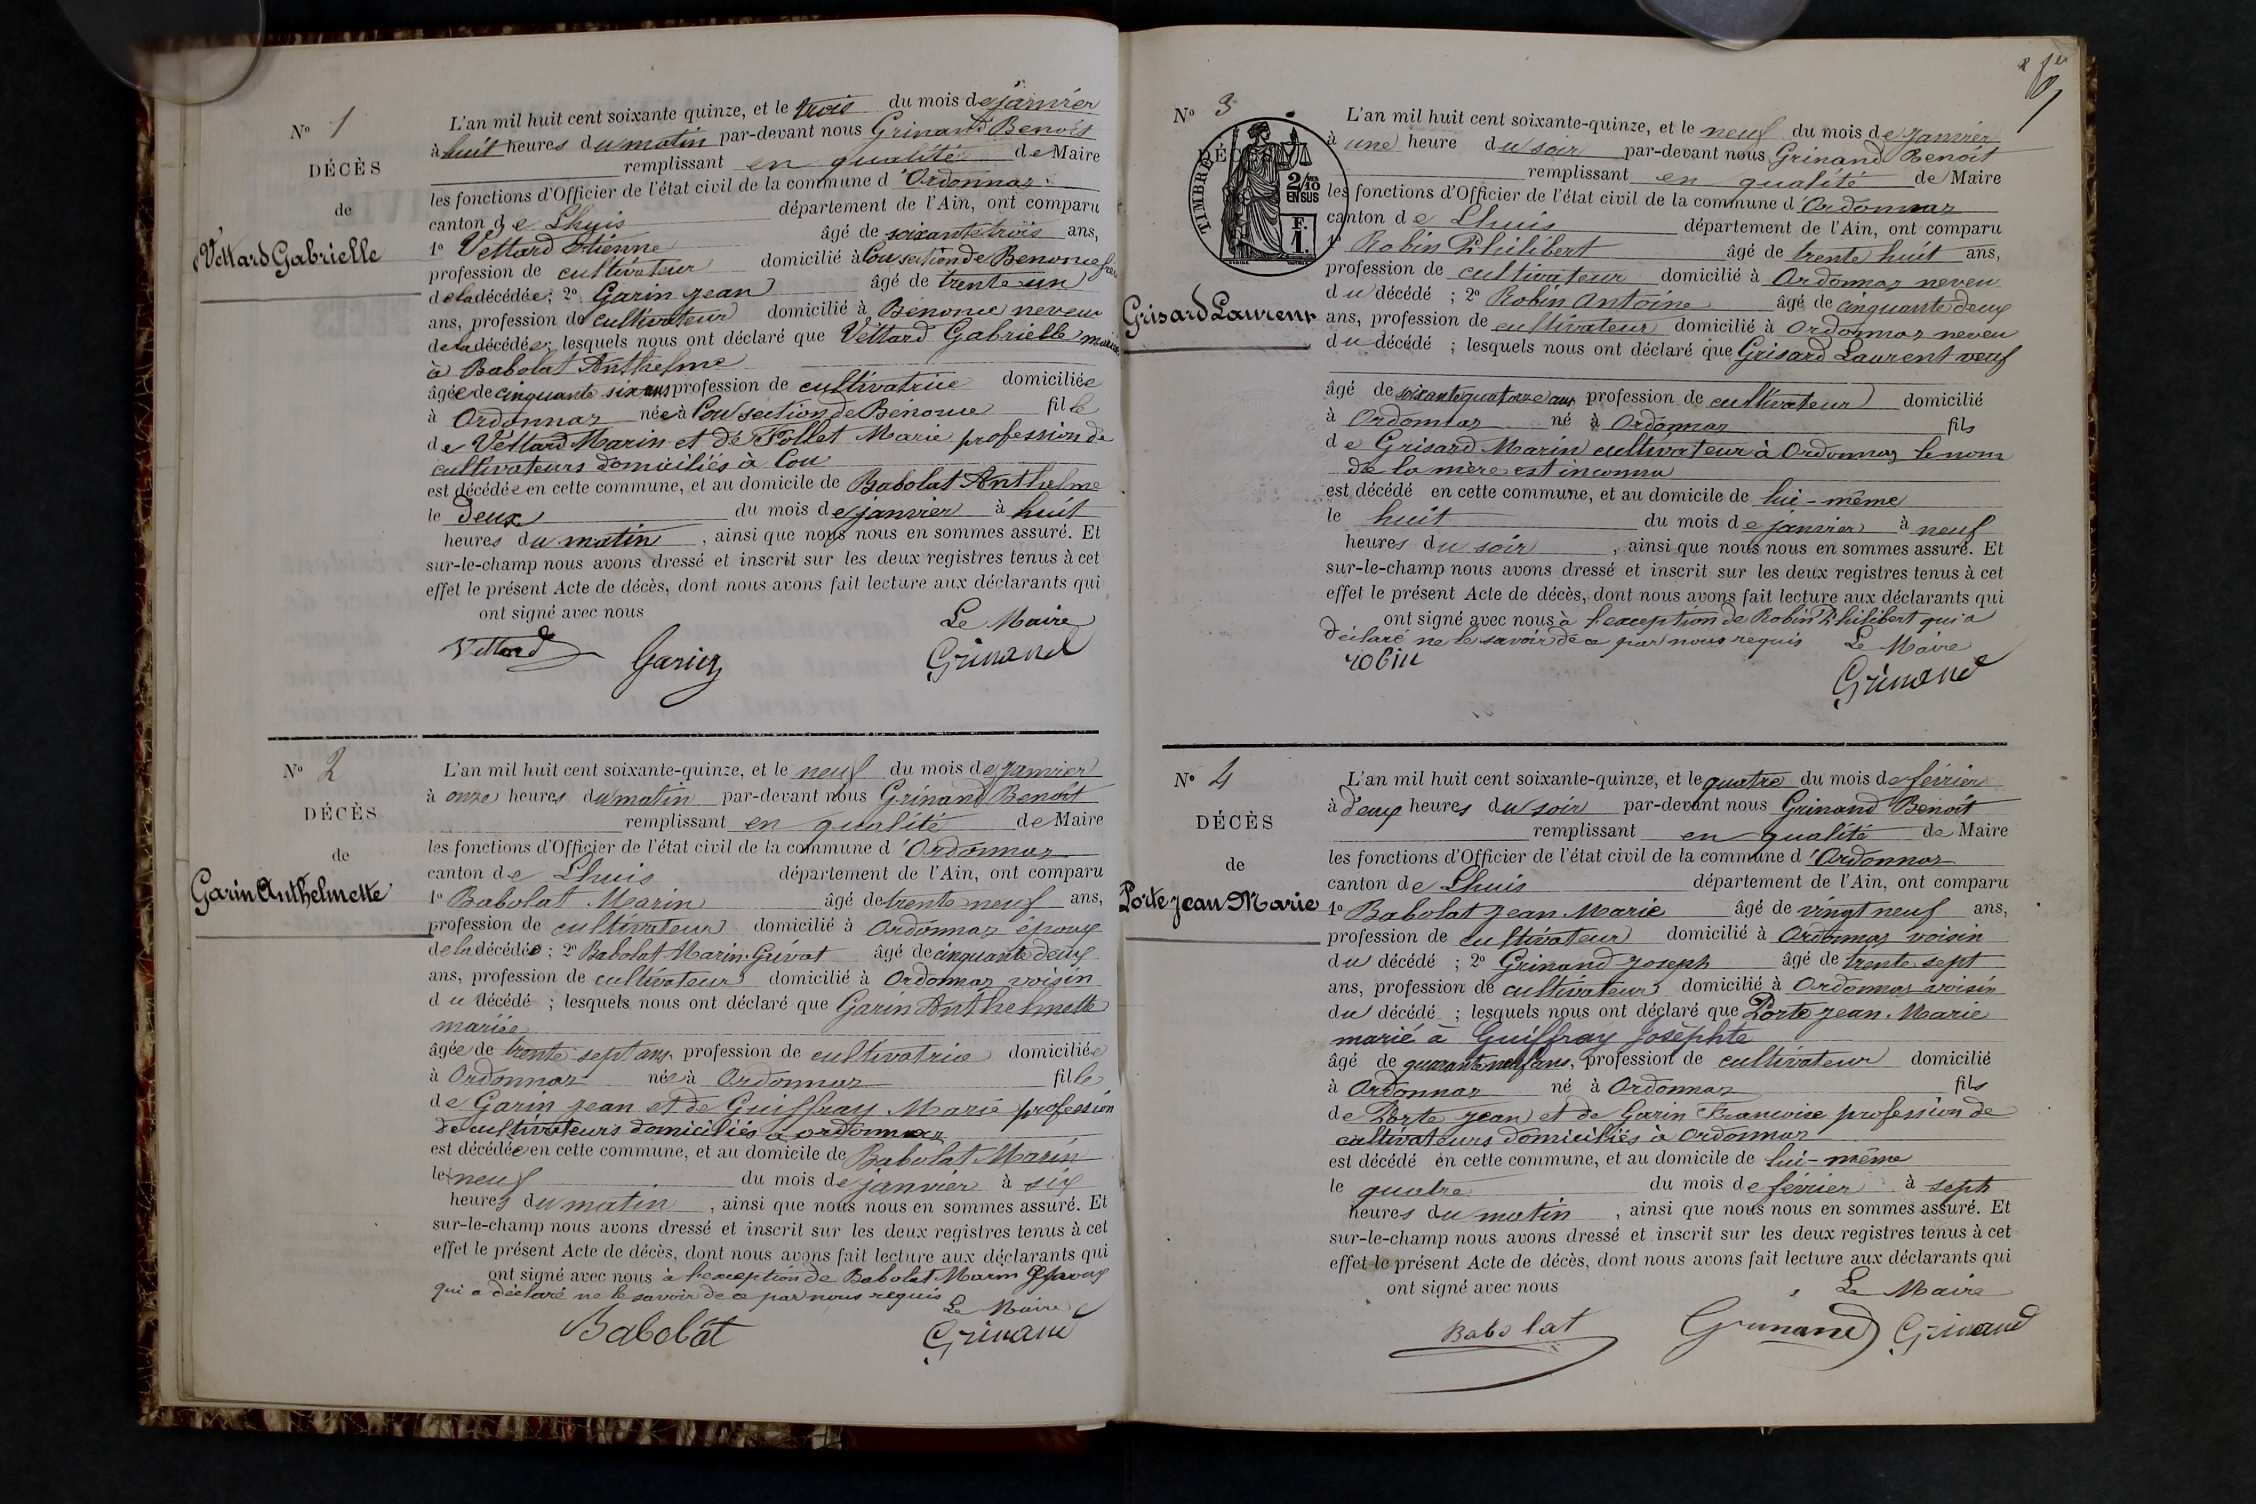 N° 1
DÉCÈS
de
Véttard Gabrielle
L'an mil huit cent soixante quinze, et le trois du mois de janvier
à huit heures du matin par-devant nous Grinand Benoît
remplissant en qualité de Maire
les fonctions d'Officier de l'état civil de la commune d'Ordonnaz
canton de Lhuis département de l'Ain, ont comparu
1° Véttard Etienne âgé de soixante trois ans,
profession de cultivateur domicilié à Cou section de Benonce
de la décédée; 2° Garin jean âgé de trente un
ans, profession de cultivateur domicilié à Bénonce neveu
de la décédée; lesquels nous ont déclaré que Véttard Gabrielle mariée
à Babolat Anthelme
âgée de cinquante six ans profession de cultivatrice domiciliée
à Ordonnaz née à Cou section de Bénonce fille
de Véttard Marin et de Follet Marie profession de
cultivateurs domiciliés à Cou
est décédée en cette commune, et au domicile de Babolat Anthelme
le deux du mois de janvier à huit
heures du matin, ainsi que nous nous en sommes assuré. Et
sur-le-champ nous avons dressé et inscrit sur les deux registres tenus à cet
effet le présent Acte de décès, dont nous avons fait lecture aux déclarants qui
ont signé avec nous
Le Maire
Vettard Garin Grinand
N° 2
DÉCÈS
de
Garin Anthelmette
L'an mil huit cent soixante-quinze, et le neuf du mois de janvier
à onze heures du matin par-devant nous Grinand Benoît
remplissant en qualité de Maire
les fonctions d'Officier de l'état civil de la commune d'Ordonnaz
canton de Lhuis département de l'Ain, ont comparu
1° Babolat Marin âgé de trente neuf ans,
profession de cultivateur domicilié à Ordonnaz époux
de la décédée; 2° Babolat Marin Grivat âgé de cinquante deux
ans, profession de cultivateur domicilié à Ordonnaz voisin
du décédé ; lesquels nous ont déclaré que Garin Anthelmette
mariée
âgée de trente sept ans profession de cultivatrice domiciliée
à Ordonnaz née à Ordonnaz fille
de Garin jean et de Guiffray Marie profession
de cultivateurs domiciliés à ordonnaz
est décédée en cette commune, et au domicile de Babolat Marin
le neuf du mois de janvier à six
heures du matin, ainsi que nous nous en sommes assuré. Et
sur-le-champ nous avons dressé et inscrit sur les deux registres tenus à cet
effet le présent Acte de décès, dont nous avons fait lecture aux déclarants qui
ont signé avec nous à l'exception de Babolat Marin
qui a déclaré ne le savoir de ce par nous requis
Le Maire
Babolat Grinand
N° 3
TIMBRE
2/10 EN SUS
F. 1.
Grisard Laurent
L'an mil huit cent soixante-quinze, et le neuf du mois de janvier
à une heure du soir par-devant nous Grinand Benoît
remplissant en qualité de Maire
les fonctions d'Officier de l'état civil de la commune d'Ordonnaz
canton de Lhuis département de l'Ain, ont comparu
1° Robin Philibert âgé de trente huit ans,
profession de cultivateur domicilié à Ordonnaz neveu
du décédé ; 2° Robin Antoine âgé de cinquante deux
ans, profession de cultivateur domicilié à Ordonnaz neveu
du décédé ; lesquels nous ont déclaré que Grisard Laurent veuf
âgé de soixante quatorze ans profession de cultivateur domicilié
à Ordonnaz né à Ordonnaz fils
de Grisard Marin cultivateur à Ordonnaz le nom
de la mère est inconnu
est décédé en cette commune, et au domicile de lui-même
le huit du mois de janvier à neuf
heures du soir, ainsi que nous nous en sommes assuré. Et
sur-le-champ nous avons dressé et inscrit sur les deux registres tenus à cet
effet le présent Acte de décès, dont nous avons fait lecture aux déclarants qui
ont signé avec nous à l'exception de Robin Philibert qui a
déclaré ne le savoir de ce par nous requis Le Maire
robin Grinand
N° 4
DÉCÈS
de
Porte jean Marie
L'an mil huit cent soixante-quinze, et le quatre du mois de février
à deux heures du soir par-devant nous Grinand Benoît
remplissant en qualité de Maire
les fonctions d'Officier de l'état civil de la commune d'Ordonnaz
canton de Lhuis département de l'Ain, ont comparu
1° Babolat jean Marie âgé de vingt neuf ans,
profession de cultivateur domicilié à Ordonnaz voisin
du décédé ; 2° Grinand joseph âgé de trente sept
ans, profession de cultivateur domicilié à Ordonnaz voisin
du décédé ; lesquels nous ont déclaré que Porte jean Marie
marié à Guiffray Josephte
âgé de quarante neuf ans, profession de cultivateur domicilié
à Ordonnaz né à Ordonnaz fils
de Porte jean et de Garin Francoise profession de
cultivateurs domiciliés à Ordonnaz
est décédé en cette commune, et au domicile de lui-même
le quatre du mois de février à sept
heures du matin, ainsi que nous nous en sommes assuré. Et
sur-le-champ nous avons dressé et inscrit sur les deux registres tenus à cet
effet le présent Acte de décès, dont nous avons fait lecture aux déclarants qui
ont signé avec nous
Le Maire
Babolat Grinand Grinand